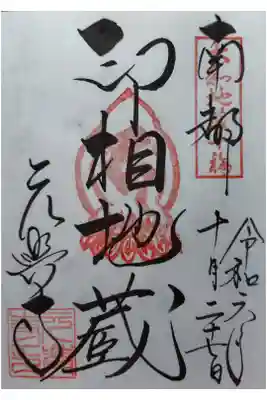 南都
令和六年
十月二十七日
印相地蔵
元興寺